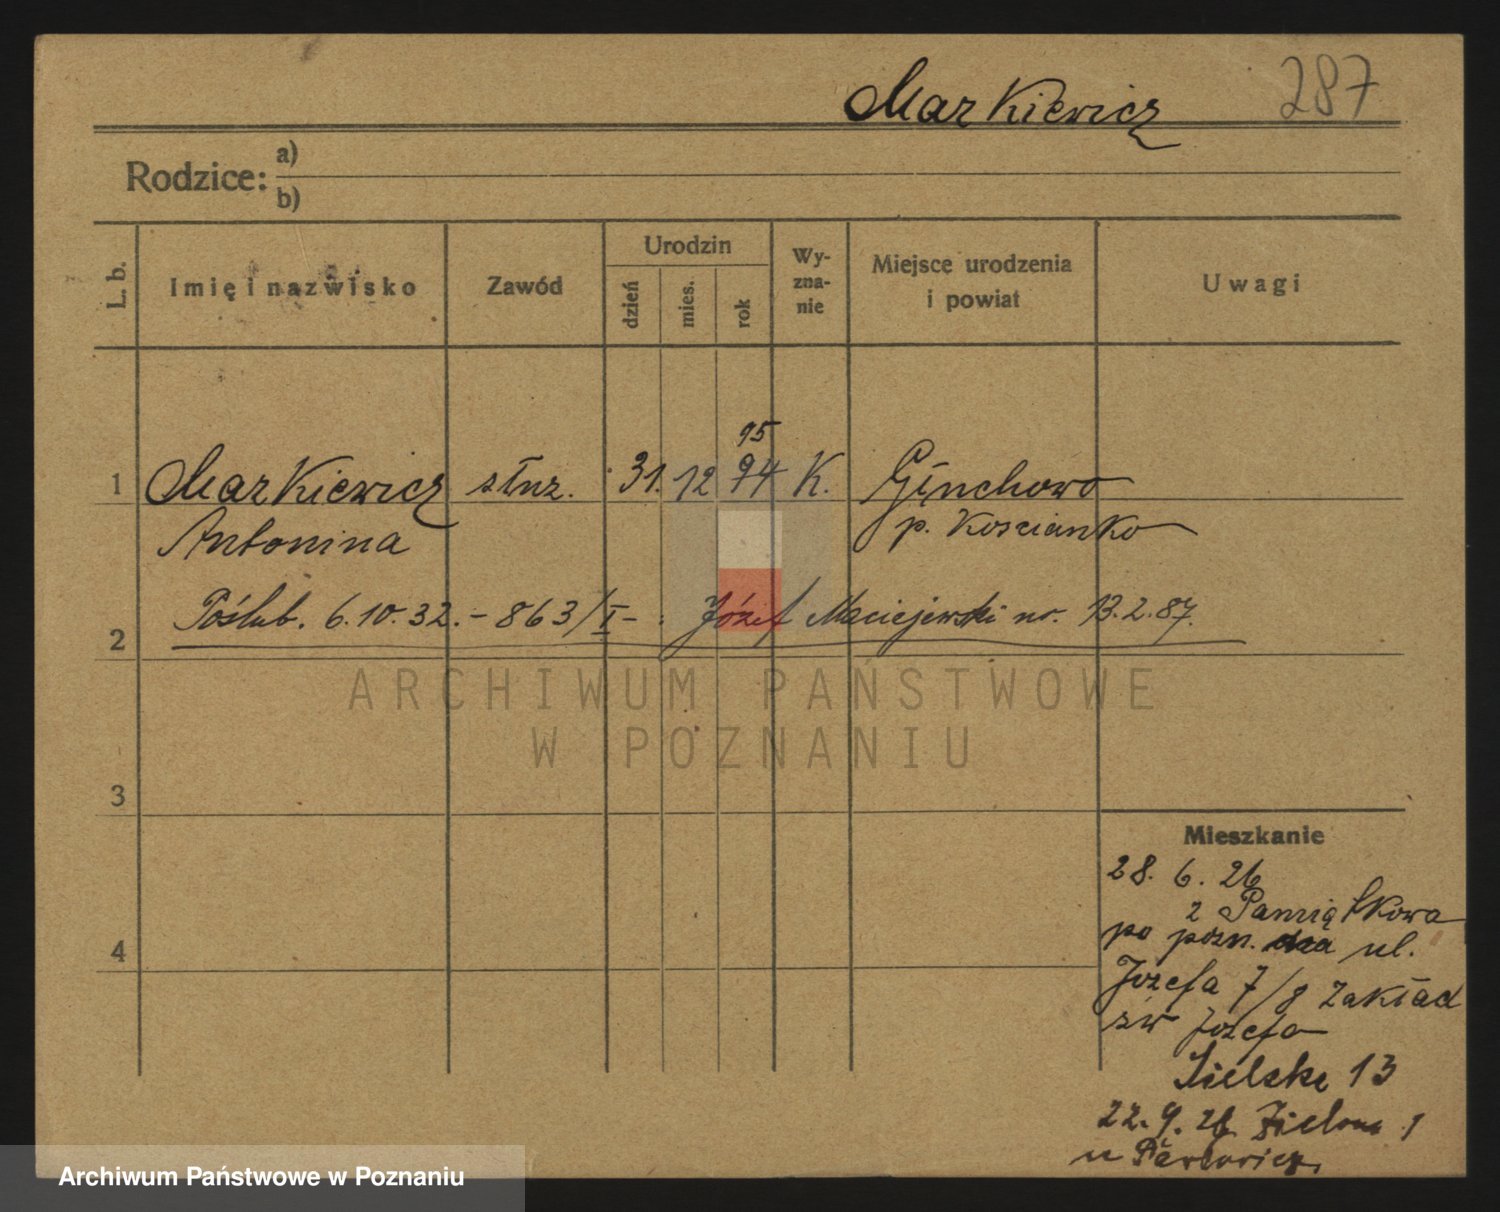 Markiewicz 287
Rodzice: a)
b)
L. b.
Imię i nazwisko
Zawód
Urodzin
dzień
mies.
rok
Wy-
zna-
nie
Miejsce urodzenia
i powiat
Uwagi
95
1 Markiewicz służ. 31. 12 94 K.
Antonina p. Koscianko
2 Poślub. 6.10.32. - 863/I - : Józef Maciejewski ur. 13.2.87.
ARCHIWUM PAŃSTWOWE
W POZNANIU
3
Mieszkanie
28. 6. 26
z Pamiątkowa
po pozn. ul.
Jozefa 7/8 Zakład
św Jozefa
4
13
22. 9. 26 1
u
Archiwum Państwowe w Poznaniu